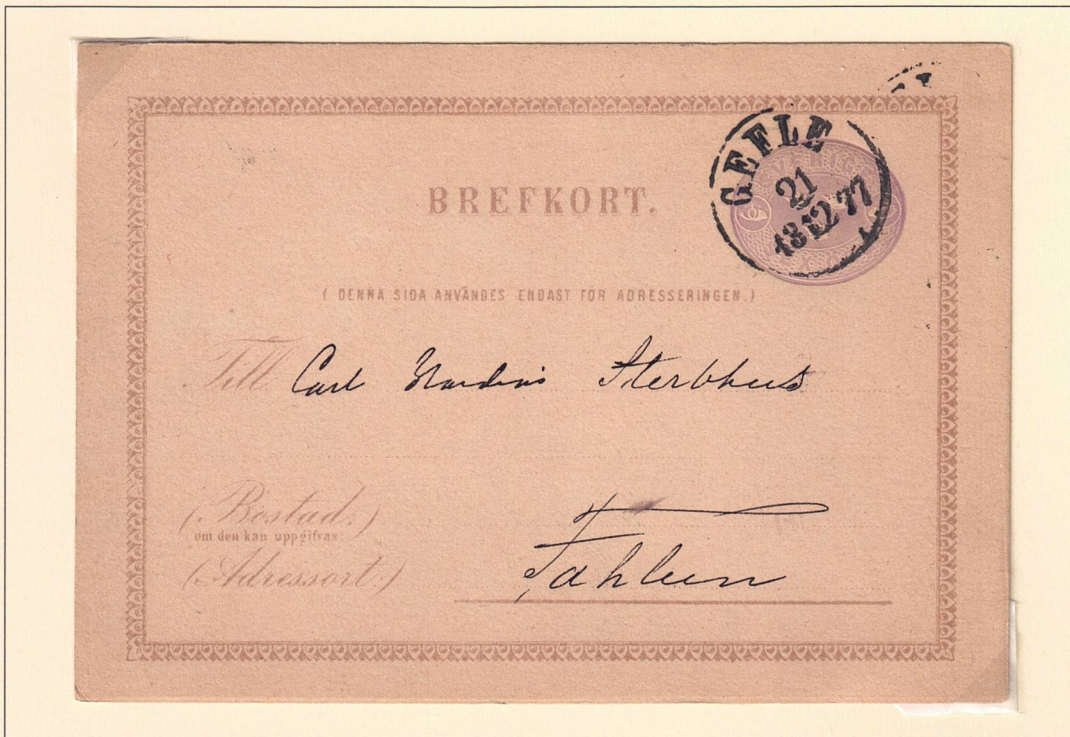 GEFLE
21
13 12 77
SVERIGE
6
BREFKORT.
( DENNA SIDA ANVÄNDES ENDAST FÖR ADRESSERINGEN.)
Till Carl Nordins Sterbhus
(Bostad,)
om den kan uppgifvas:
(Adressort.)
Fahlun